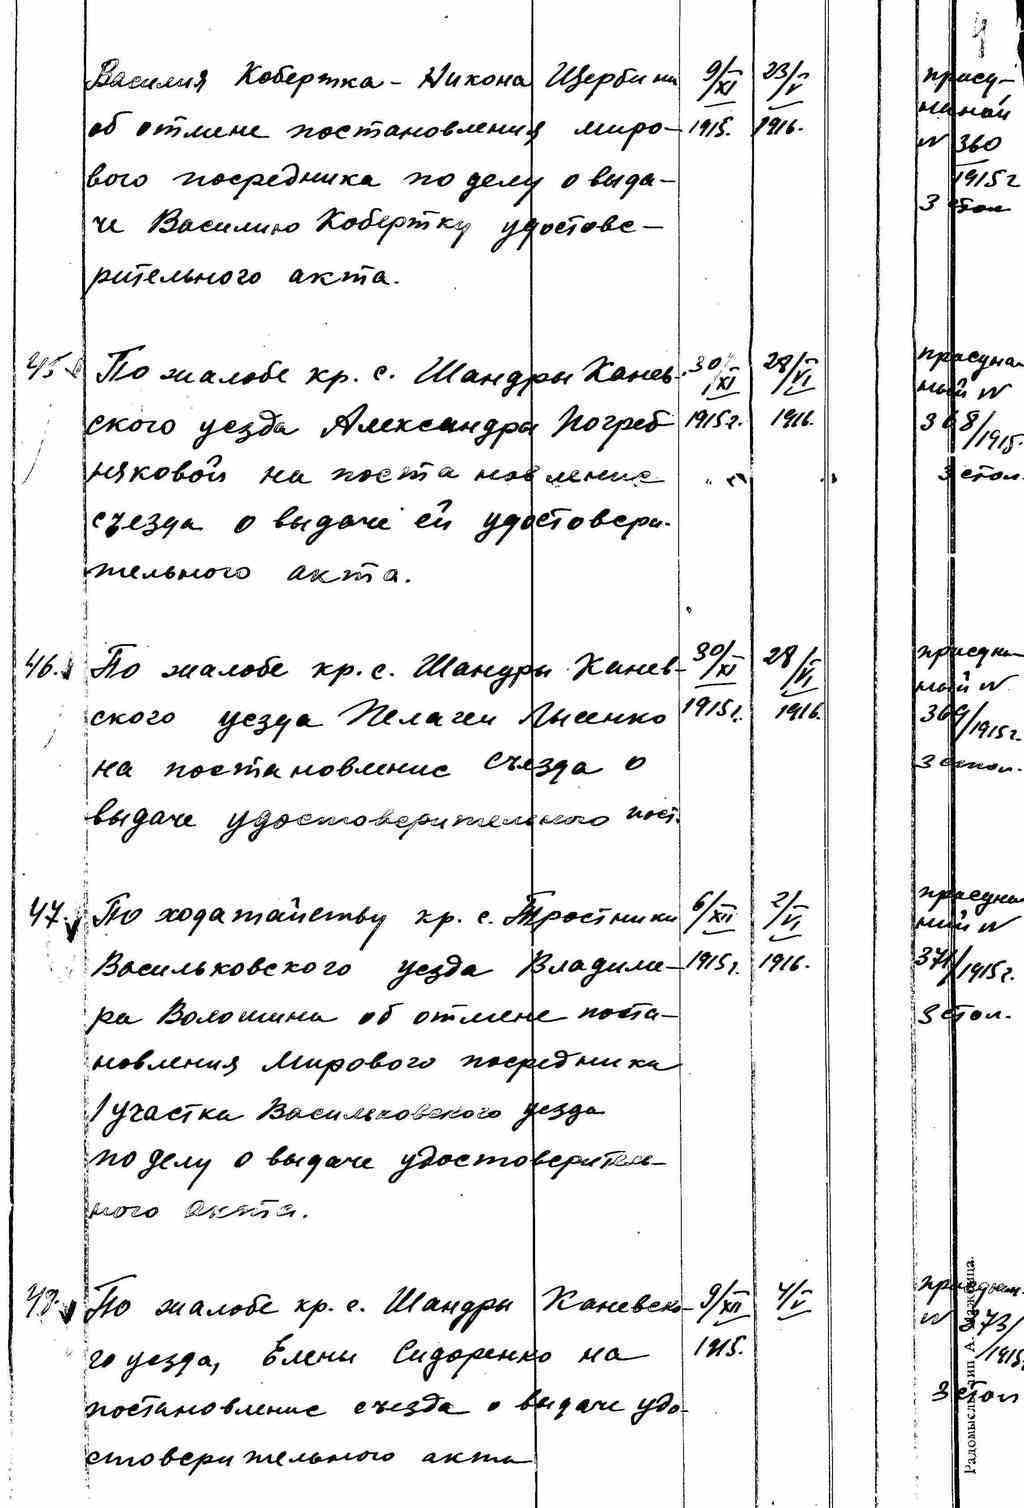 Василия Кобертка - Никона Щербины 9/XI 23/V прису-
об отмене постановления миро- 1915. 1916. нной
вого посредника по делу о выда- N 360
че Василию Кобертку удостове- 1915 г
рительного акта. 3 стол
45 По жалобе кр. с. Шандры Канев- 30/XI 28/VI
ского уезда Александры Погреб 1915 г. 1916. 368/1915.
няковой на постановление 3 стол.
съезда о выдаче ей удостовери-
тельного акта.
46. По жалобе кр. с. Шандры Канев- 30/XI 28/VI
ского уезда Пелагеи Лысенко 1915 г. 1916. 369/1915 г.
на постановление съезда о 3 стол.
выдаче удостоверительного
47. По ходатайству кр. с. Тростинки 6/XII 2/VI
Васильковского уезда Владими- 1915 г. 1916. 371/1915 г.
ра Волошина об отмене поста- 3 стол.
новления Мирового посредника
1 участка Васильковского уезда
по делу о выдаче удостоверитель-
ного акта.
48. По жалобе кр. с. Шандры Каневско- 9/XII 4/V
го уезда, Елены Сидоренко на 1915. N 373/1915
постановление съезда о выдаче удо- 3 стол
стоверительного акта